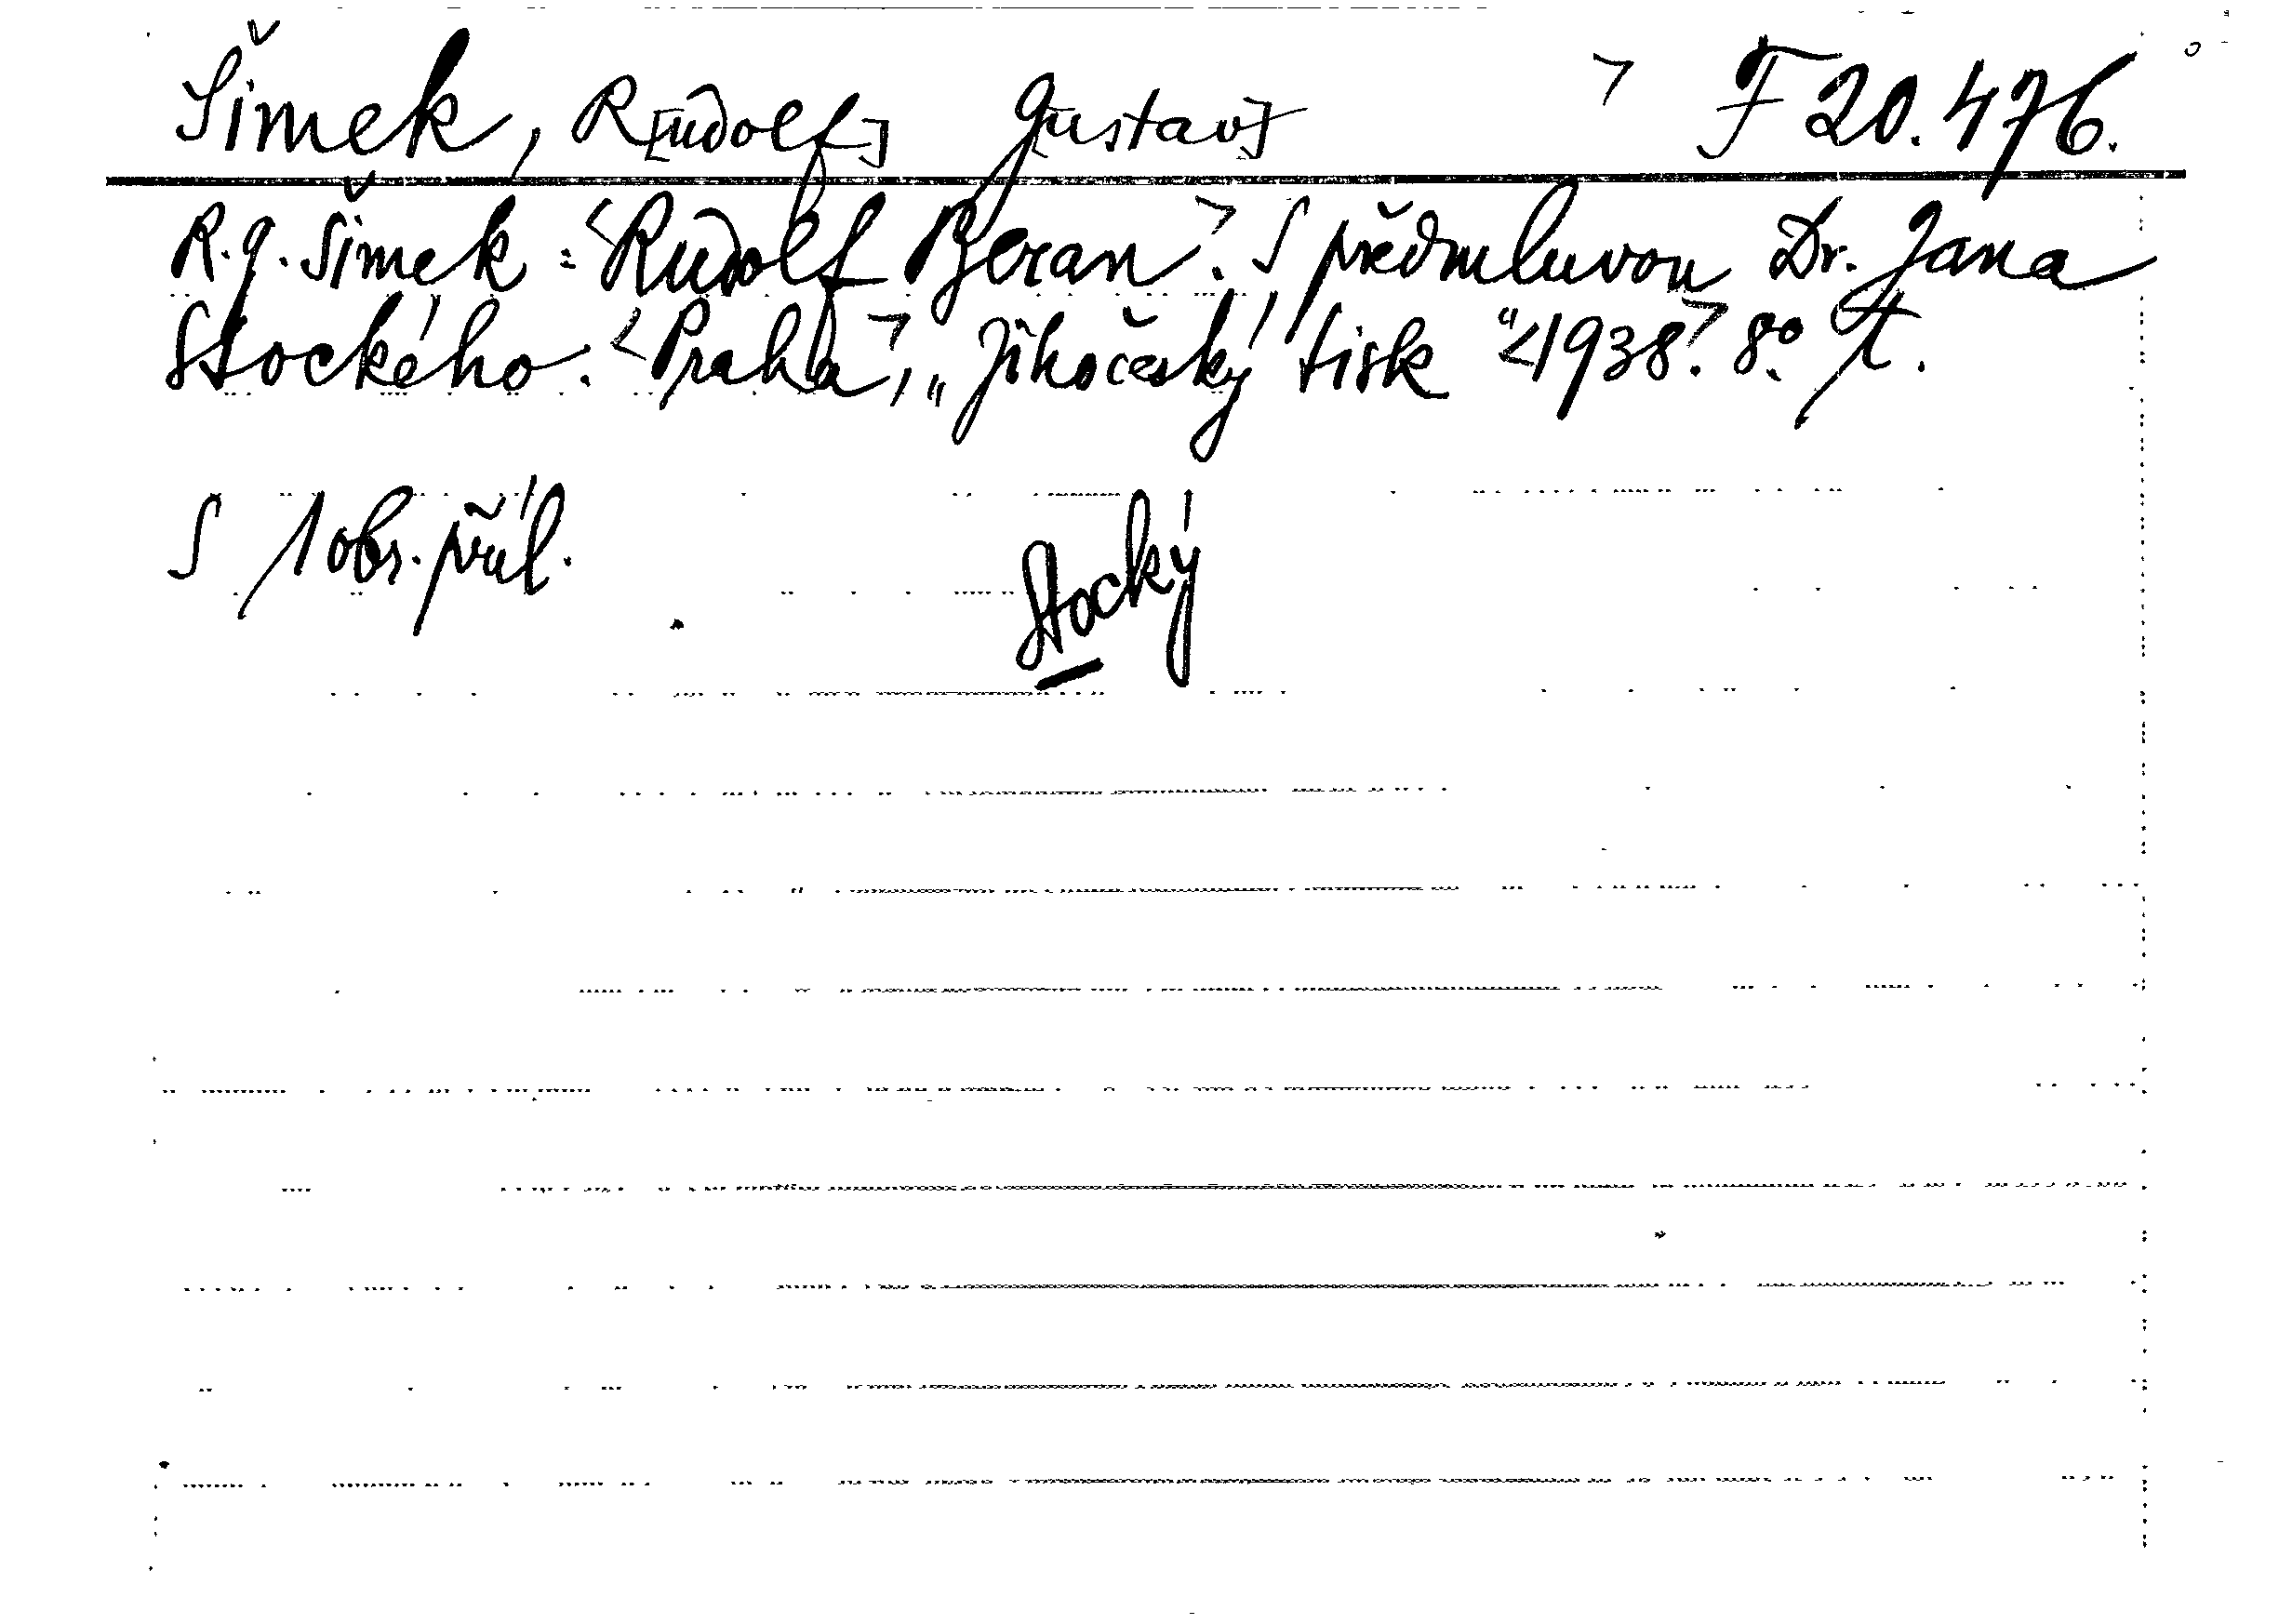 Šimek, R[udolf] G[ustav] > F 20.476.
R.G. Šimek: <Rudolf Beran>. S předmluvou Dr. Jana
Stockého. <Praha>, „Jihočeský tisk“ <1938>. 8°. T.
S 1 obr. příl.
Stocký